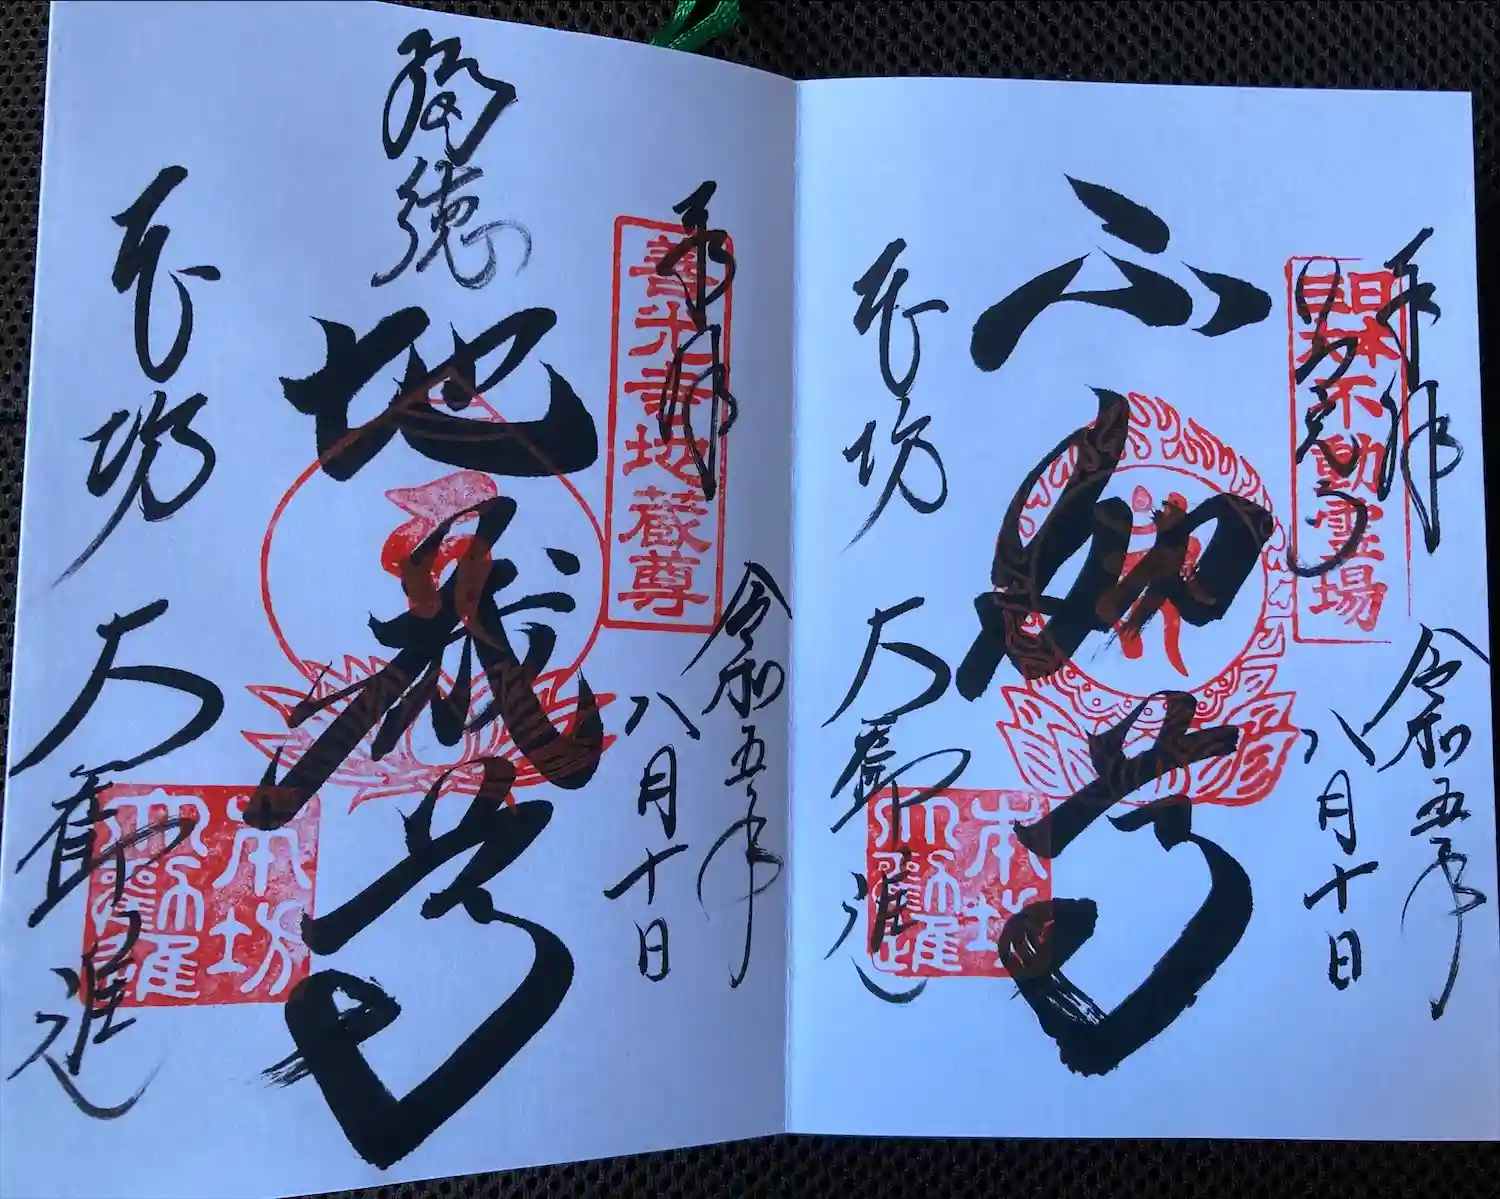 奉拝
日本三大不動霊場
令和五年
八月十日
不動尊
本坊
大勧進
本坊
大勧進
奉拝
善光寺地蔵尊
令和五年
八月十日
福徳
地蔵尊
本坊
大勧進
本坊
大勧進